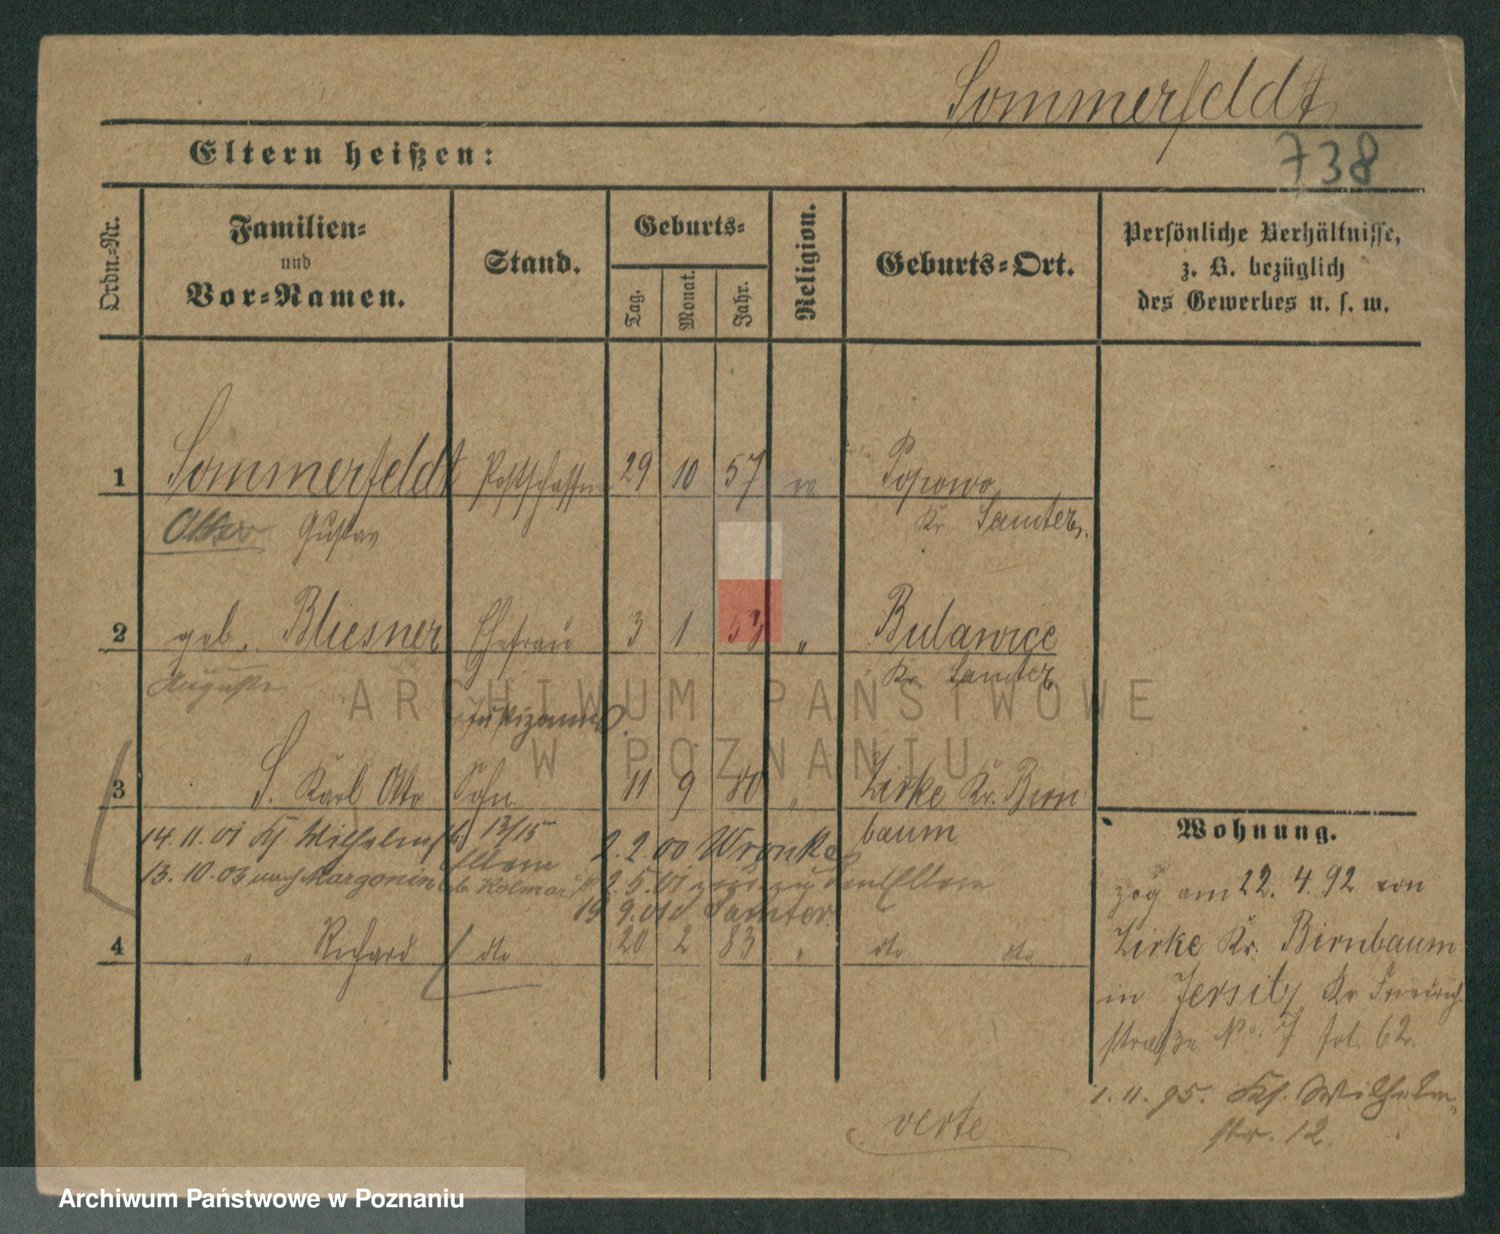 Sommerfeldt
738
Eltern heißen:
Ordn.-Nr.
Familien-
und
Vor-Namen.
Stand.
Geburts-
Tag.
Monat.
Jahr.
Religion.
Geburts-Ort.
Persönliche Verhältnisse,
z. B. bezüglich
des Gewerbes u. s. w.
1 Sommerfeldt Postschaffn 29 10 57 ev Popowo
Otto Gustav Kr Samter.
2 geb. Bliesner Ehefrau 3 1 53 " Bulawice
Auguste Kr Samter
ARCHIWUM PAŃSTWOWE
W POZNANIU
3 S. Karl Otto Sohn 11 9 80 " Zirke Kr. Birn
baum
14.11.01 Kl Wilhelmstr 13/15 2.2.00 Wronke
Eltern
13.10.03 nach Margonin b. Kolmar 2.5.01 zu den Eltern
19 9.01 Samter
4 " Richard dto 20 2 83 " dto dto
Wohnung.
zog am 22.4.92 von
Zirke Kr. Birnbaum
in Jersitz Kr Friedrich
straße No. 7 fol. 62.
1.11.95. Kl. Wilhelm-
str. 12.
verte
Archiwum Państwowe w Poznaniu